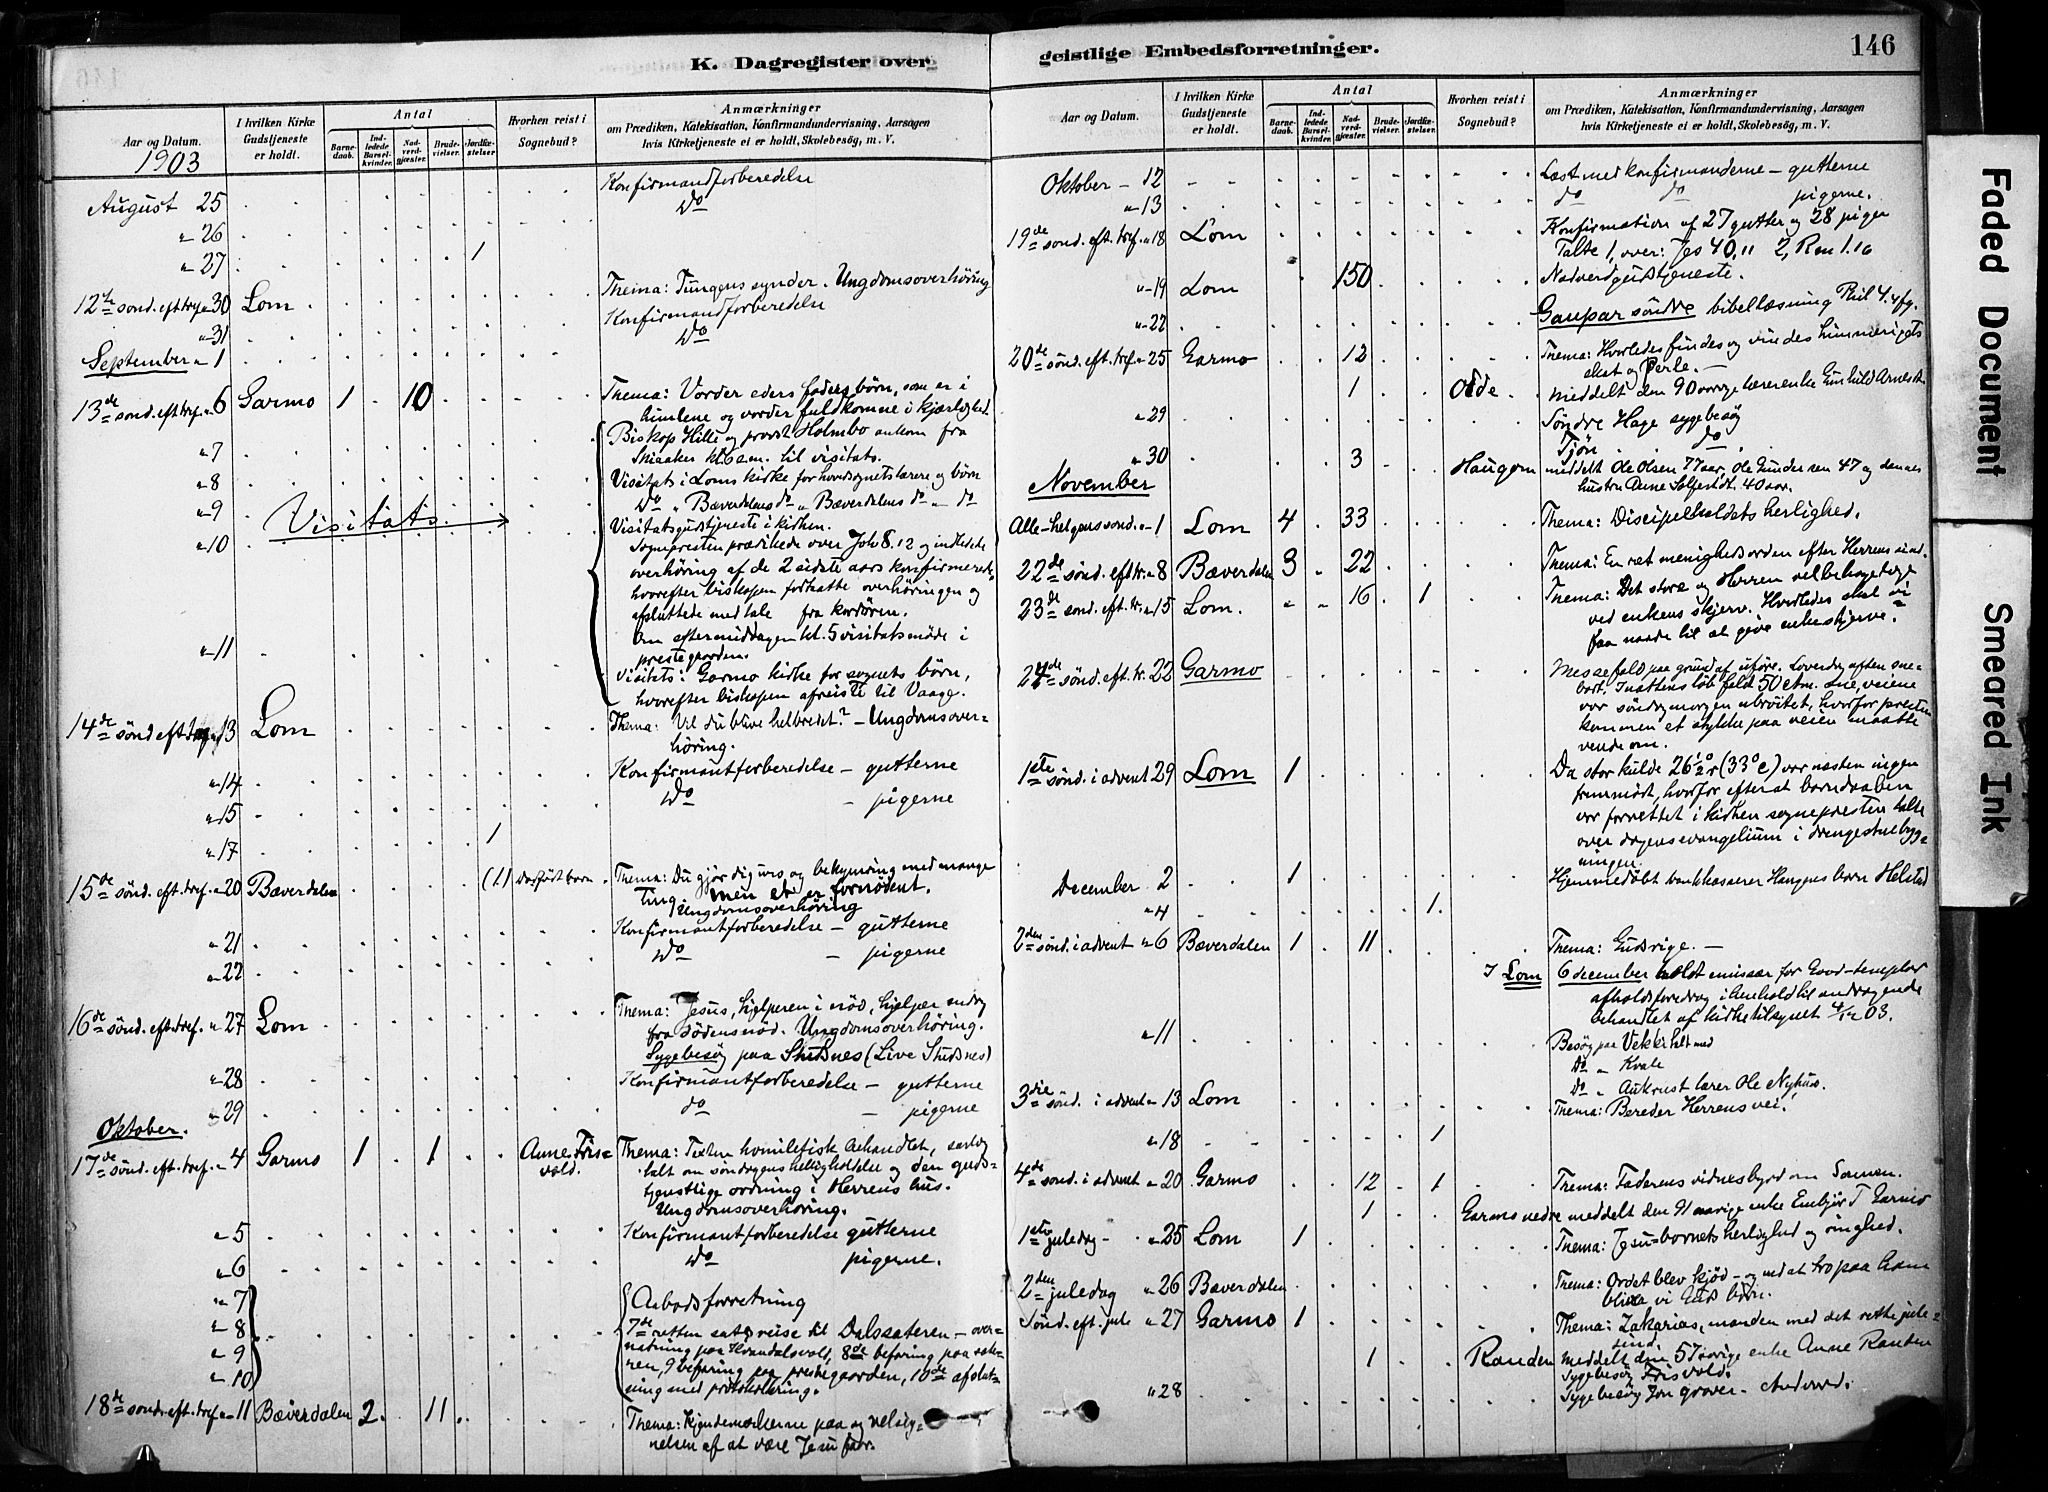 K. Dagregister over
Aar og Datum.
1903
I hvilken Kirke Gudstjeneste er holdt.
Antal
Barne-daab.
Ind-ledede Barsel-kvinder.
Nad-verd-gjæster.
Brude-vielser.
Jordfæ-stelser
Hvorhen reist i Sognebud?
Anmærkninger
om Prædiken, Katekisation, Konfirmandundervisning, Aarsagen
hvis Kirketjeneste ei er holdt, Skolebesøg, m. V.
August 25 Konfirmandforberedelse
" 26 Do
" 27 1
12te sønd. eft. tref. " 30 Lom Thema: Tungens synder. Ungdomsoverhøring
" 31 Konfirmandforberedelse
September " 1 Do
13de sønd. eft. tref. " 6 Garmo 1 10 Thema: Vorder eders faders børn, som er i
himlene og vorder fuldkomne i kjærlighed.
" 7 Biskop Hille og provst Holmbo ankom fra
Skiaaker kl. 6 em. til visitats.
" 8 Visitats i Loms kirke for hovedsognets lærere og børn
" 9 Do " Bæverdalens do " Bæverdalens do " do
Visitats
" 10 Visitatsgudstjeneste i kirken.
Sognepresten prædikede over Joh 8.12 og indledede
overhøring af de 2 sidste aars konfirmerede,
hvorefter biskopen fortsatte overhøringen og
afsluttede med tale fra kordøren.
Om eftermiddagen kl. 5 visitatsmøde i
prestegaarden.
" 11 Visitats i Garmo kirke for sognets børn,
hvorefter biskopen afreiste til Vaage.
14de sønd. eft. tref. " 13 Lom Thema: Vil du blive helbredet? – Ungdomsover-
høring.
" 14 Konfirmantforberedelse – gutterne
" 15 Do – pigerne
" 17 1
15de sønd. eft. tref. " 20 Bæverdalen (1) Dødfødt barn Thema: Du gjør dig uro og bekymring med mange
ting, men et er fornødent.
Ungdomsoverhøring
" 21 Konfirmantforberedelse – gutterne
" 22 Do – pigerne
16de sønd. eft. tref. " 27 Lom Thema: Jesus, hjelperen i nød, hjelper endog
fra dødens nød. Ungdomsoverhøring.
Sygebesøg paa Stusnes (Live Stusnes)
" 28 Konfirmantforberedelse – gutterne
" 29 do – pigerne
Oktober.
17de sønd. eft. tref. " 4 Garmo 1 1 Anne Fris-
vold. Thema: Texten homiletisk behandlet, særlig
talt om søndagens helligholdelse og den guds-
tjenstlige ordning i Herrens hus.
Ungdomsoverhøring.
" 5 Konfirmantforberedelse gutterne
" 6 Do pigerne.
" 7 Aabodsforretning
" 8 7de retten sat, reise til Dalssæteren – over-
natning paa 8de befaring paa sæte-
" 9 ren, 9 befaring paa prestegaarden, 10de afslut-
" 10 ning med protokollering.
18de sønd. eft. tref. " 11 Bæverdalen 2. 11. Thema: Kjendemærkerne paa og velsig-
nelsen af at være Jesu faar.
geistlige Embedsforretninger.
146
Aar og Datum.
I hvilken Kirke Gudstjeneste er holdt.
Antal
Barne-daab.
Ind-ledede Barsel-kvinder.
Nad-verd-gjæster.
Brude-vielser.
Jordfæ-stelser
Hvorhen reist i Sognebud?
Anmærkninger
om Prædiken, Katekisation, Konfirmandundervisning, Aarsagen
hvis Kirketjeneste ei er holdt, Skolebesøg, m. V.
Oktober – 12 Læst med konfirmanderne – gutterne
" 13 do do pigerne.
19de sønd. eft. tref. " 18 Lom Konfirmation af 27 gutter og 28 piger
Talte 1, over: Jes 40,11 2, Rom 1.16
" 19 Lom 150 Nadverdgudstjeneste.
" 22 Gaupar søndre bibellæsning Phil 4.4 fg.
20de sønd. eft. tref. " 25 Garmo 12 Thema: Hvorledes findes og vindes himmerigets
skat og perle. –
1 Odde meddelt den 90 aarige lærerenke Gunhild
" 29 Søndre Hage sygebesøg
Tjøn do
" 30 3 Haugom meddelt Ole Olsen 77 aar, Ole Gundersen 47 og dennes
hustru 40 aar.
November
Alle-helgens sønd. " 1 Lom 4 33 Thema: Discipelholdets herlighed.
22de sønd. eft. tr. " 8 Bæverdalen 3 22 Thema: En ret menighedsorden efter Herrens sind.
23de sønd. eft. tr. " 15 Lom. 16 1 Thema: Det store og Herren velbehagelige
ved enkens skjerv. Hvorledes skal vi
faa naade til at give enkeskjerve.
24de sønd. eft. tr. 22 Garmo Messefald paa grund af uføre. Løverdag aften sne-
bart. I nattens løb faldt 50 ctm. sne, veiene
var søndag morgen ubrøitet, hvorfor presten
kommen et stykke paa veien maatte
vende om.
1ste sønd. i advent 29 Lom 1 Da stor kulde 26½° r (33° c) var næsten ingen
fremmødt, hvorfor efter at barnedaaben
var forrettet i kirken sognepresten talte
over dagens evangelium i drengestuebyg-
ningen.
December 2 1 Hjemmedøbt bankkasserer Haugens barn
" 4 1.
2den sønd. i advent " 6 Bæverdalen 1 11 Thema: Guds rige. –
I Lom 6 december holdt emissær for Good-templar
afholdsforedrag i henhold til andragende
behandlet af kirketilsynet 4/12 03.
" 11 Besøg paa
Do " Kvale
Do " Aukrust lærer Ole Nyhus.
3die sønd. i advent " 13 Lom Thema: Bereder Herrens vei!
" 18 1
4de sønd. i advent " 20 Garmo 12 1 Thema: Faderens vidnesbyrd om Sønnen.
1 Garmo nedre meddelt den 91 aarige enke Embjør T Garmo
1ste juledag – " 25 Lom 1 Thema: Jesu-barnets herlighed og ringhed.
2den juledag " 26 Bæverdalen Thema: Ordet blev kjød – og ved at tro paa ham
blive vi Guds børn.
Sønd. eft. jule " 27 Garmo 1 Thema: Zakarias, manden med det rette jule-
sind.
1 Randen meddelt den 57 aarige enke Anne Randen
Sygebesøg Frisvold.
" 28 Sygebesøg Jon
Faded Document
Smeared Ink